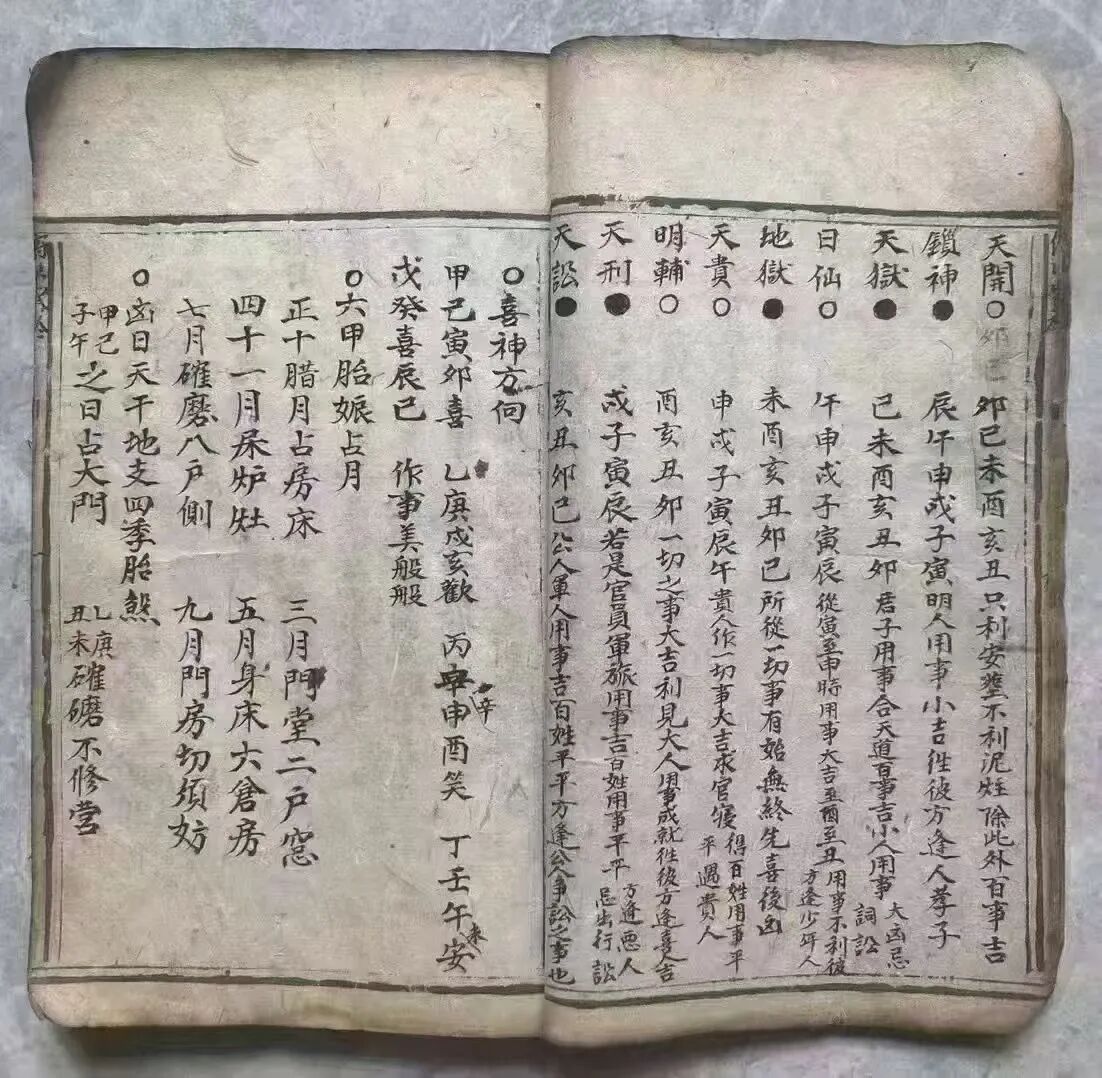 天開○ 卯巳未酉亥丑只利安葬不利泥灶除此外百事吉
鎖神● 辰午申戌子寅明人用事小吉徃彼方逢人孝子
天獄● 巳未酉亥丑卯君子用事合天道百事吉小人用事大凶忌詞訟
日仙○ 午申戌子寅辰從寅至申時用事大吉至酉至丑用事不利彼方逢少年人
地獄● 未酉亥丑卯巳所從一切事有始無終先喜後凶
天貴○ 申戌子寅辰午貴人作一切事大吉求官得百姓用事平平遇貴人
明輔○ 酉亥丑卯一切之事大吉利見大人用事成就徃彼方逢喜人吉
天刑● 戌子寅辰若是官員軍旅用事吉百姓用事平平方逢悪人忌出行訟
天訟● 亥丑卯巳公人軍人用事吉百姓平平方逢公人爭訟之事也
○喜神方向
甲己寅卯喜 乙庚戌亥歡 丙辛申酉笑 丁壬午未安
戊癸喜辰巳 作事美般般
○六甲胎娠占月
正十腊月占房床 三月門堂二戶窓
四十一月杘炉灶 五月身床六倉房
七月碓磨八戶側 九月門房切須妨
○凶日天干地支四季胎煞
甲己子午之日占大門 乚庚丑未碓磨不修営